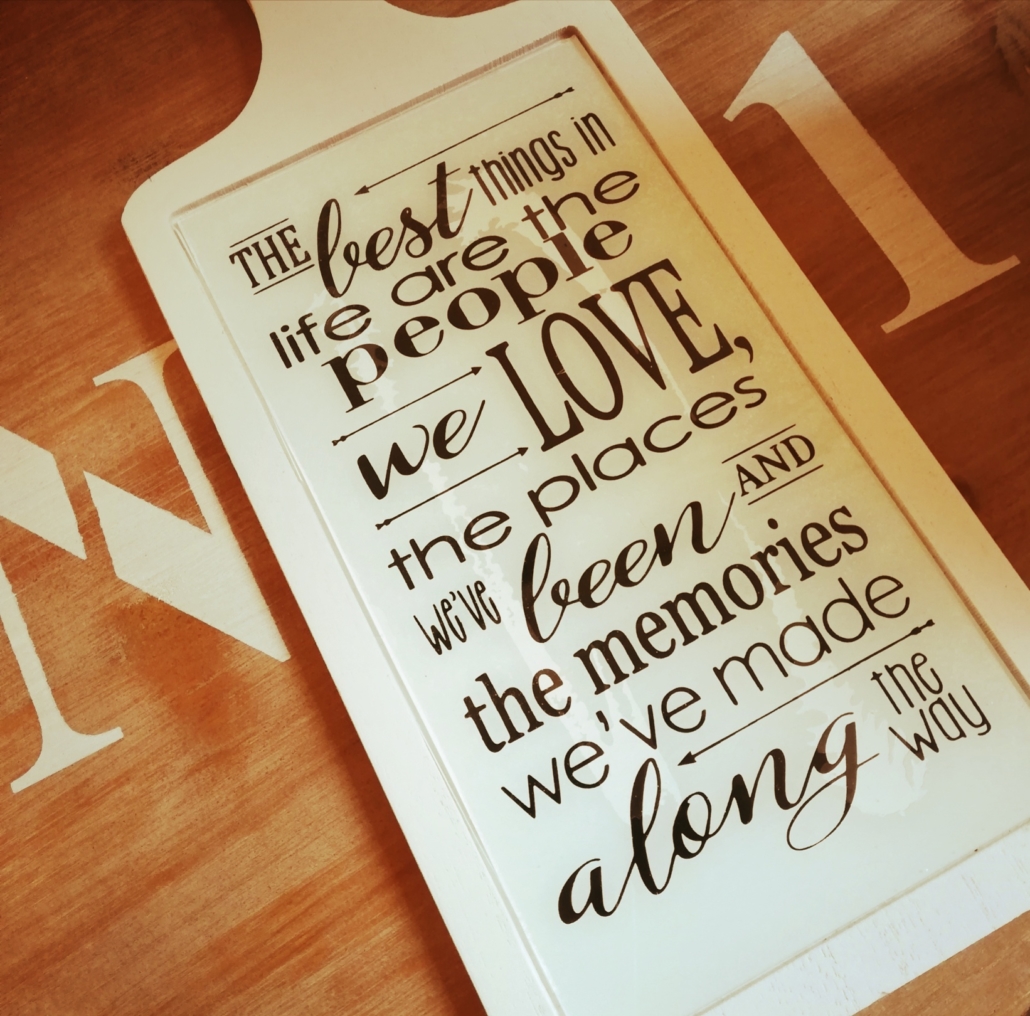 THE best things in
life are the
people
we LOVE,
the places
we've been AND
the memories
we've made
along the way
N
1